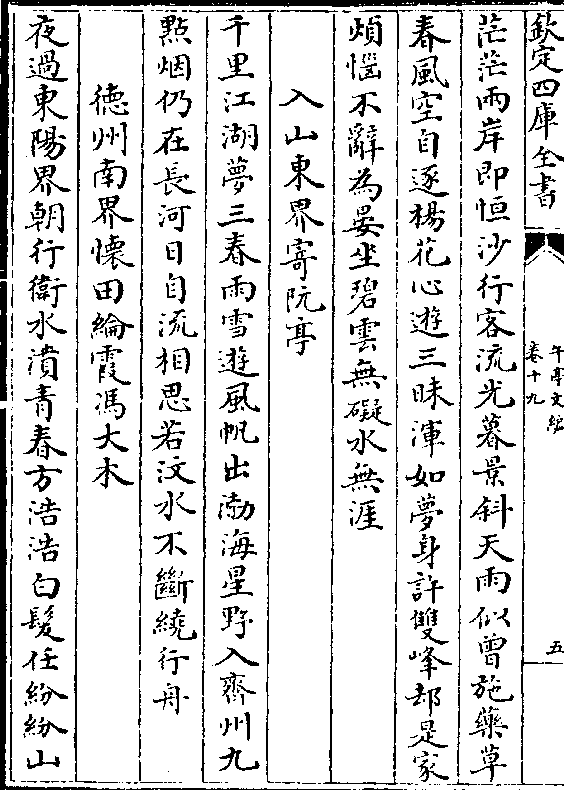 欽定四庫全書
午亭文編
卷十九
五
茫茫兩岸即恒沙行客流光暮景斜天雨似曾施藥草
春風空自逐楊花心遊三昧渾如夢身許雙峰却是家
煩惱不辭為晏坐碧雲無礙水無涯
入山東界寄阮亭
千里江湖夢三春雨雪遊風帆出渤海星野入齊州九
㸃烟仍在長河日自流相思若汶水不斷繞行舟
德州南界懷田綸霞馮大木
夜過東陽界朝行衛水濆青春方浩浩白髪任紛紛山